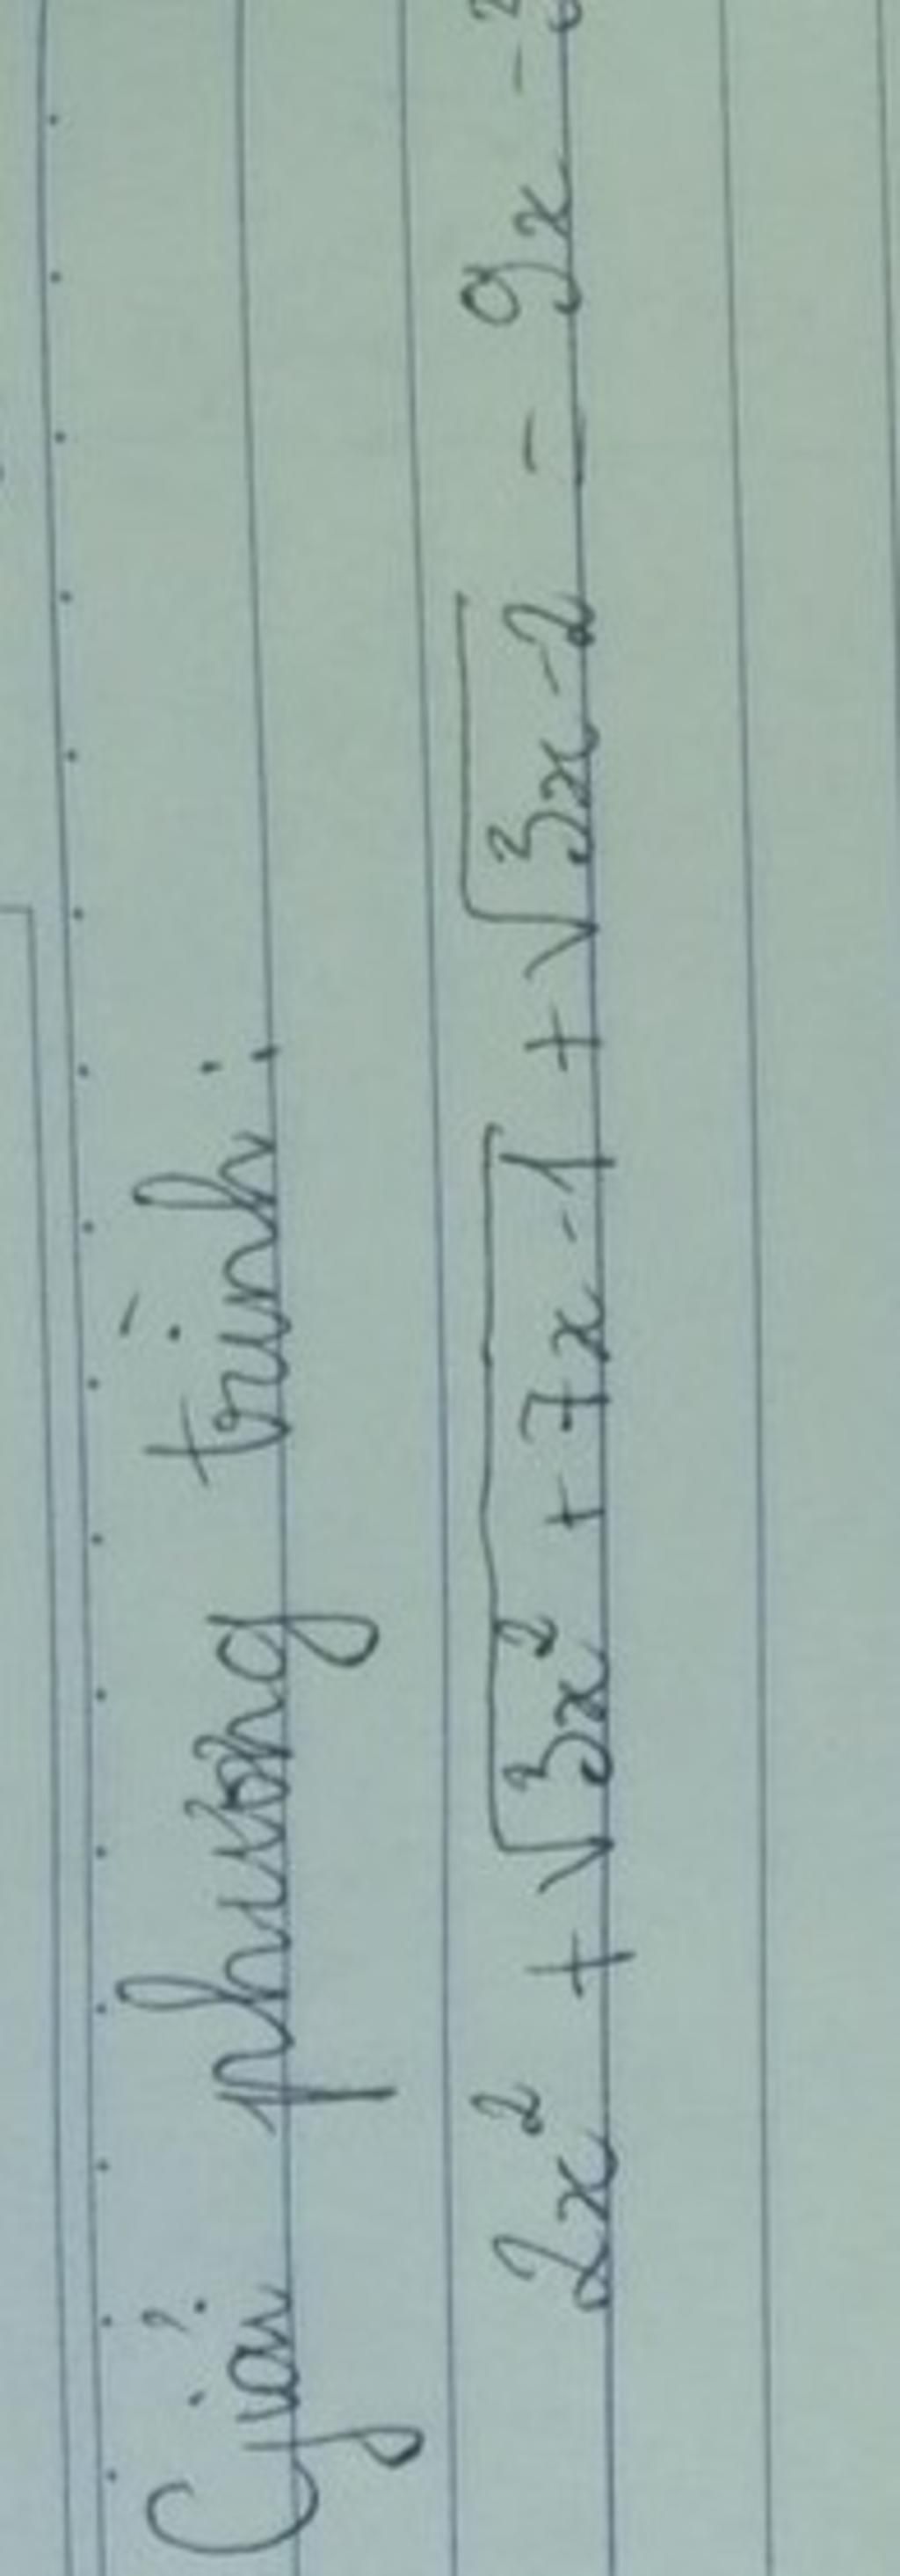 Giải phương trình:
2x² + √(3x² + 7x - 1) + √(3x - 2) = 9x -